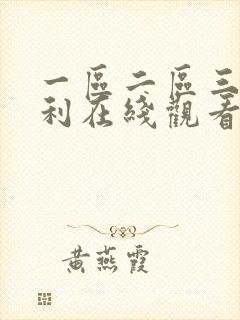 一區二區三
利在綫觀看
黄燕霞